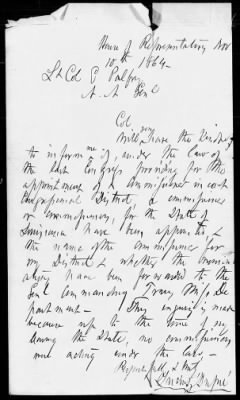 House of Representatives Nov
10th 1864
Lt Col P Palfrey
A. A. Genl
Col
Will you have the kindness
to inform me if, under the law of
the last Congress providing for the
appointment of a Commissioner in each
Congressional District, a Commissioner
or Commissioners, for the State of
Louisiana have been appointed &
the name of the Commissioner for
my District & whether the
have been forwarded to the
Genl Commanding Trans Miss De
partment - This enquiry is made
because up to the time of my
leaving the State, no Commissioner
was acting under the law -
Respectfully & Obt
Lucius Dupré